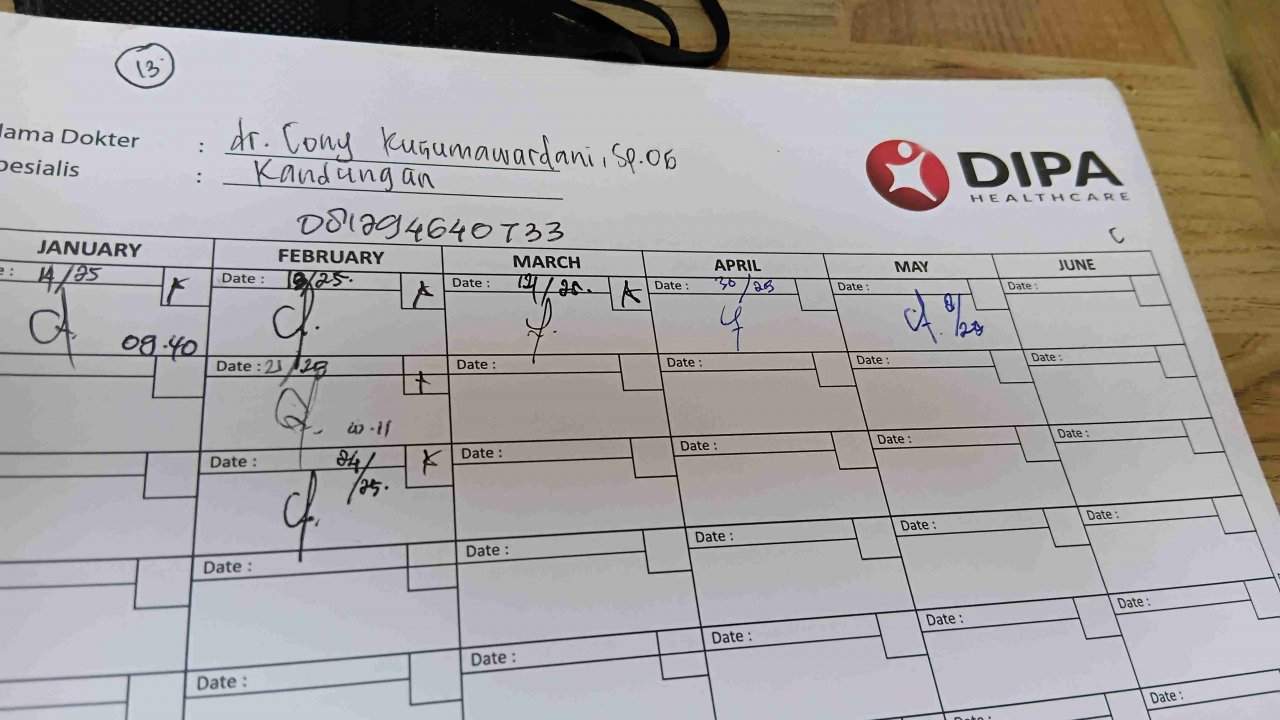 13
Nama Dokter : dr. Cony Kusumawardani, Sp.OG
Spesialis : Kandungan
DIPA
HEALTHCARE
081294640733
C
JANUARY FEBRUARY MARCH APRIL MAY JUNE
14/25 Date : /25. Date : Date : 30/25 Date : Date :
09.40
Date : 21/25 Date : Date : Date : Date :
10-11
Date : 24/25. Date : Date : Date : Date :
Date : Date : Date : Date : Date :
Date : Date : Date : Date : Date :
Date :